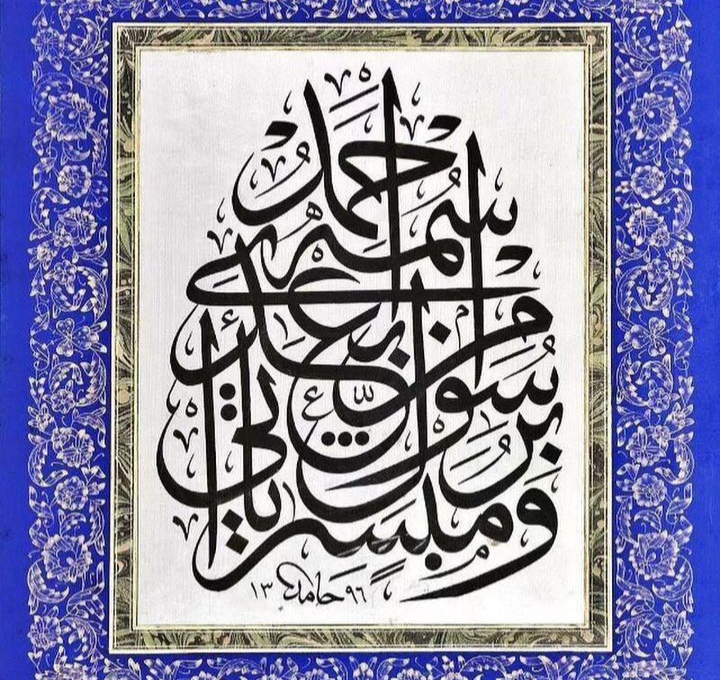 وَمُبَشِّرًا بِرَسُولٍ يَأْتِي مِنْ بَعْدِي اسْمُهُ أَحْمَدُ
حامد ١٣٩٦